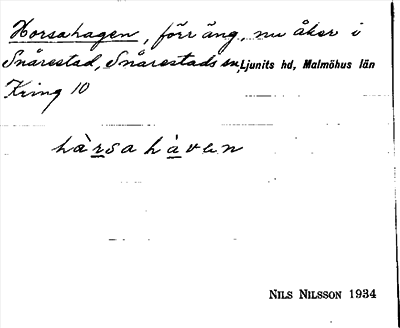 Horsahagen, förr äng, nu åker i
Snårestad, Snårestads sn, Ljunits hd, Malmöhus län
Kring 10
hàrsahàven
NILS NILSSON 1934